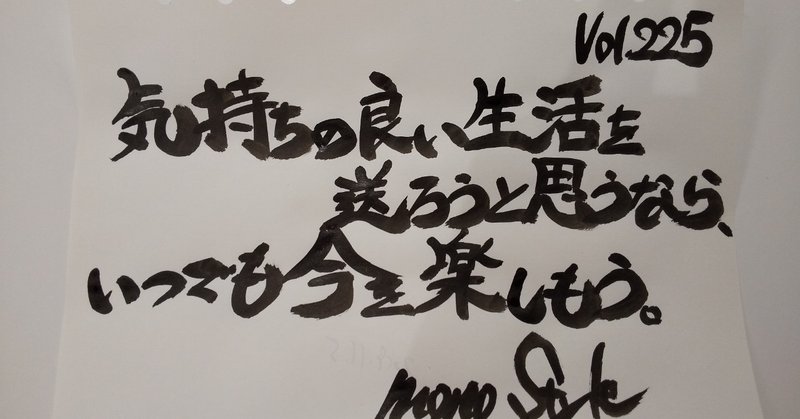 Vol.225
気持ちの良い生活を
送ろうと思うなら、
いつでも今を楽しもう。
momo Style